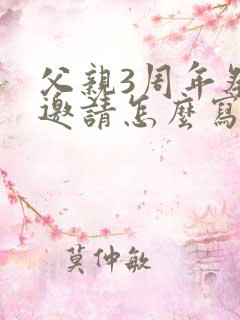 父親3周年
邀請怎麼寫
莫仲敏